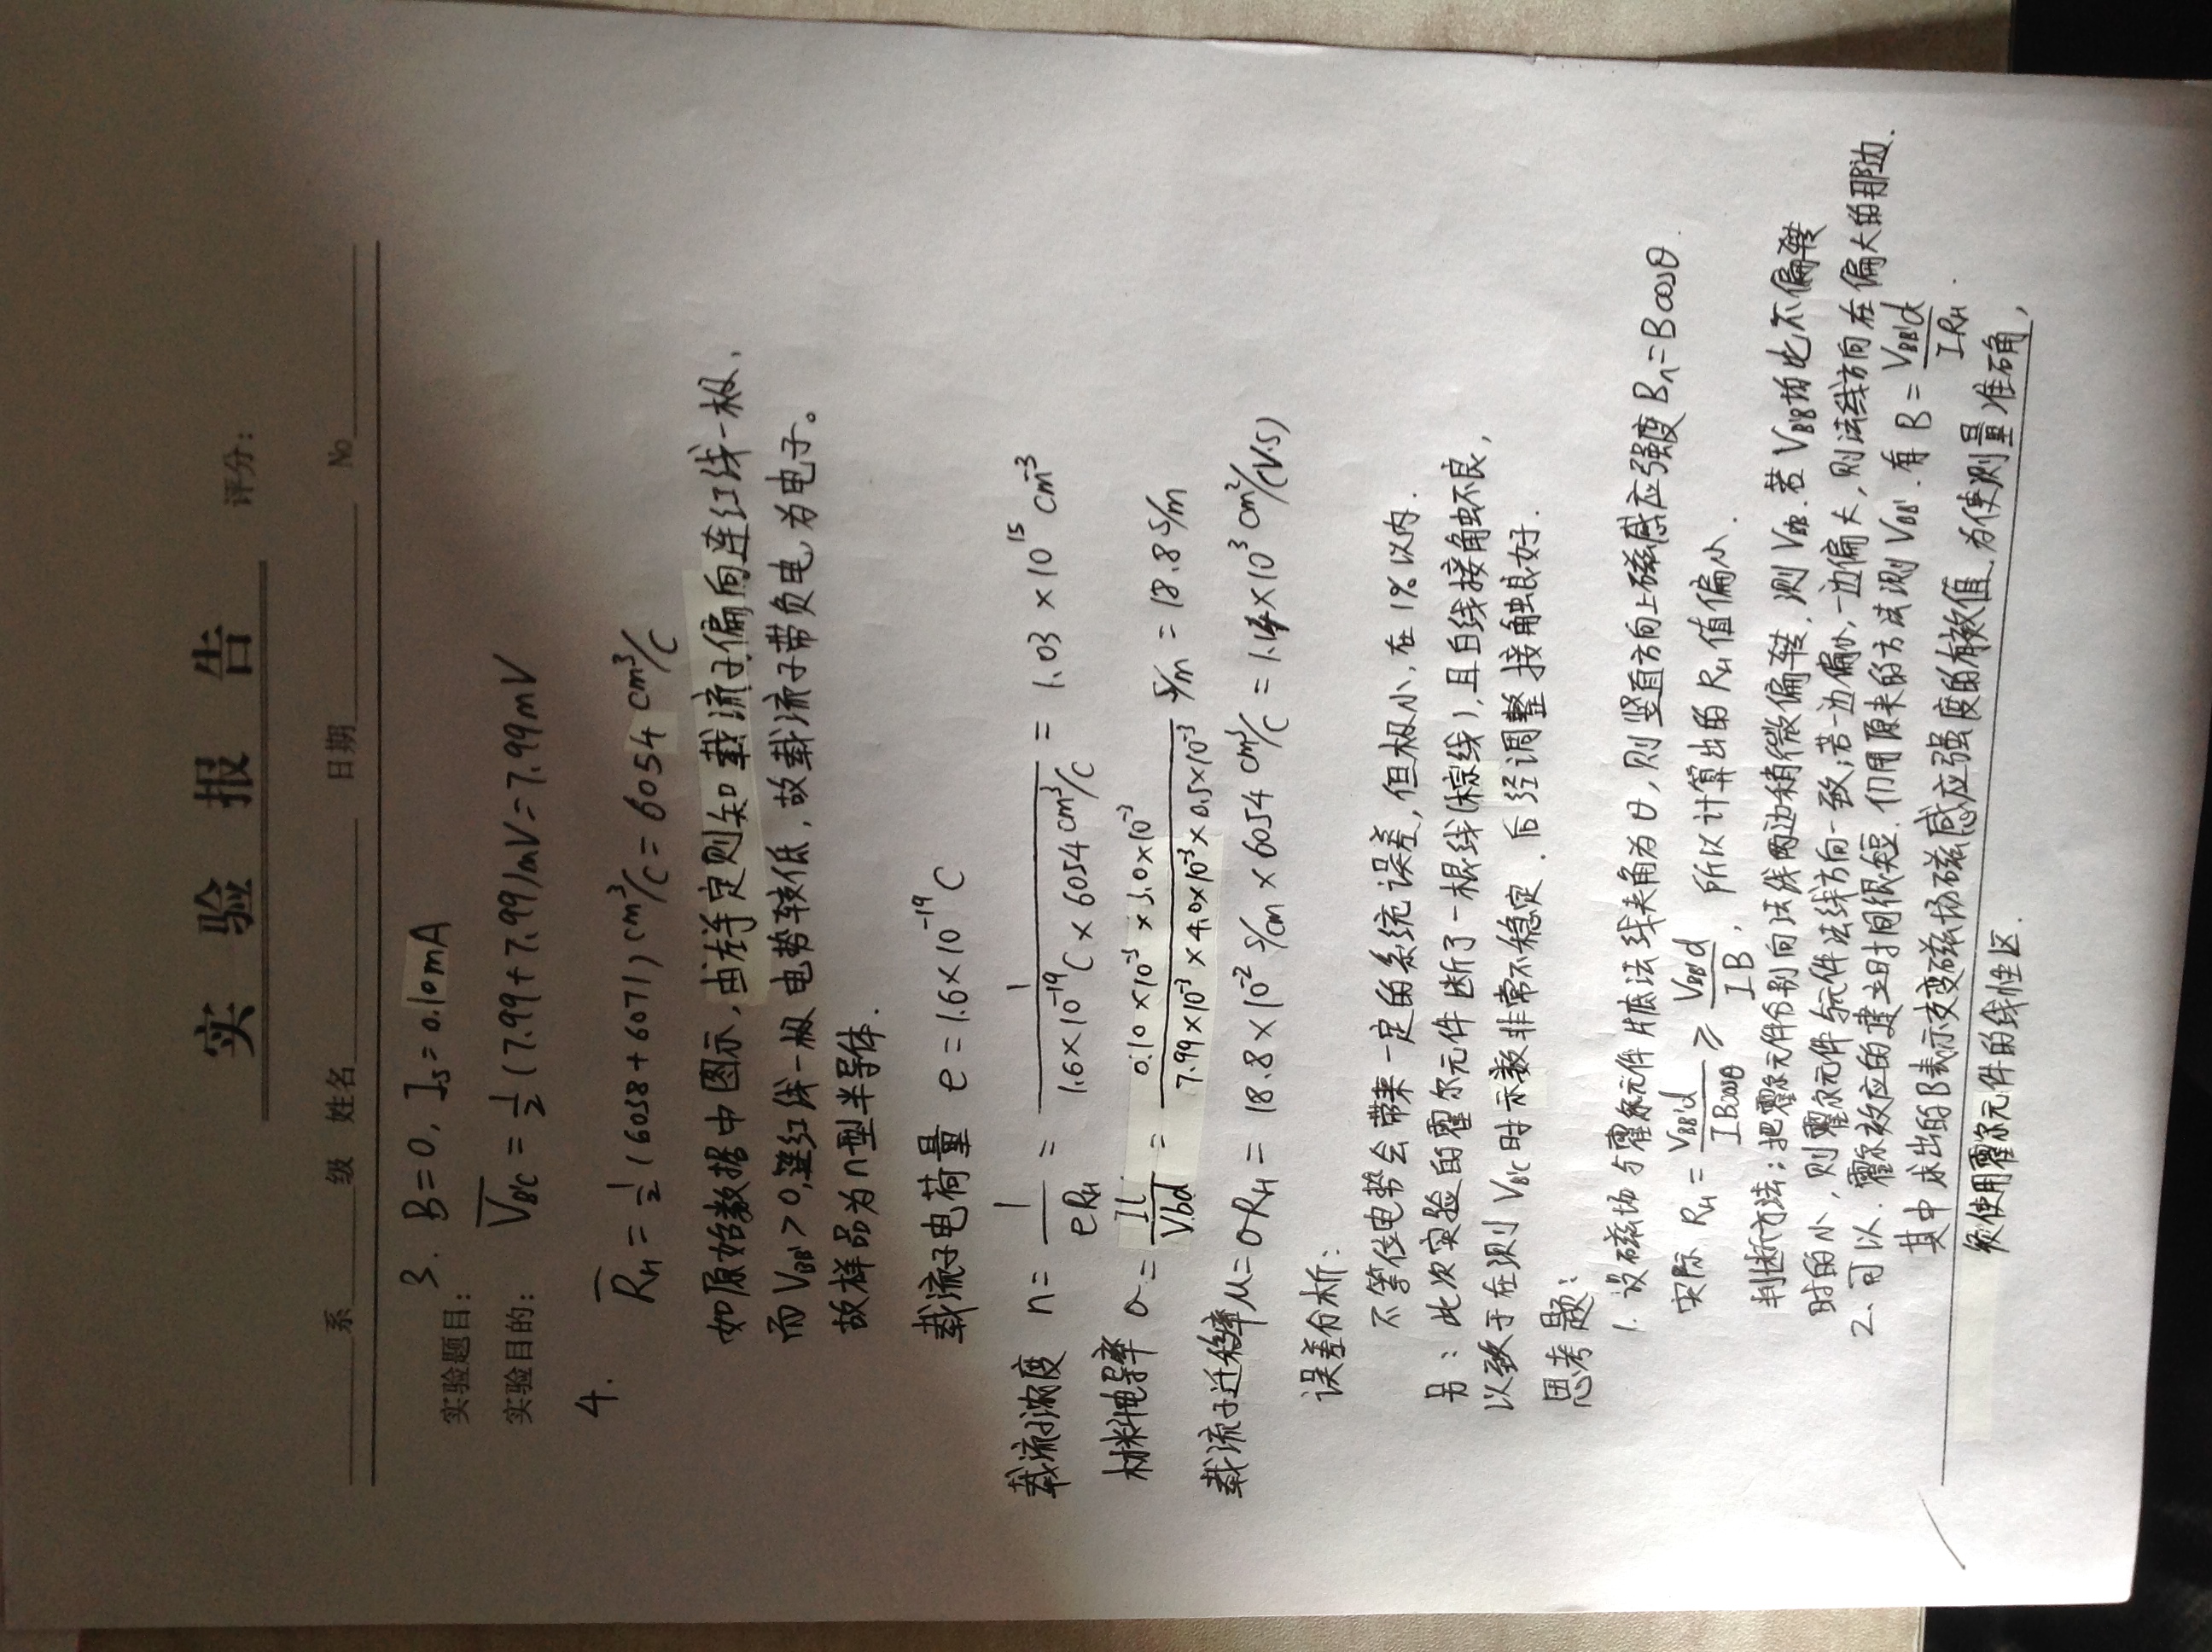 实 验 报 告 评分:
系 级 姓名 日期 No
3. B=0, Is=0.10mA
实验题目:
实验目的: V̅B'C = 1/2 (7.99+7.99)mV=7.99mV
4.
R̅H = 1/2 (6038+6071) cm³/C = 6054 cm³/C
如原始数据中图示,由左手定则知载流子偏向连红线一极,
而VBB'>0,连红线一极电势较低,故载流子带负电,为电子。
故样品为n型半导体.
载流子电荷量 e=1.6×10⁻¹⁹C
载流子浓度 n= 1/eRH = 1/(1.6×10⁻¹⁹C×6054cm³/C) = 1.03×10¹⁵cm⁻³
材料电导率 σ= Il/Vbd = (0.10×10⁻³×3.0×10⁻³)/(7.99×10⁻³×4.0×10⁻³×0.5×10⁻³) S/m = 18.8S/m
载流子迁移率μ=σRH = 18.8×10⁻² S/cm × 6054 cm³/C = 1.14×10³ cm²/(V.S)
误差分析:
不等位电势会带来一定的系统误差,但极小,在1%以内.
另:此次实验的霍尔元件断了一根线(棕线),且白线接触不良,
以致于在测VB'C时示数非常不稳定.后经调整接触良好.
思考题:
1. 设磁场与霍尔元件片底法线夹角为θ,则竖直方向上磁感应强度Bn=Bcosθ.
实际 RH = VBB'd/IBcosθ ≥ VBB'd/IB, 所以计算出的RH值偏小.
判断方法:把霍尔元件分别向法线两边稍微偏转,测VBB'.若VBB'均比不偏转
时的小,则霍尔元件与元件法线方向一致;若一边偏小,一边偏大,则法线方向在偏大的那边.
2. 可以.霍尔效应的建立时间很短.仍用原来的方法测VBB'.有B= VBB'd/IRH.
其中求出的B表示交变磁场磁感应强度的有效值.为使测量准确,
须使用霍尔元件的线性区.